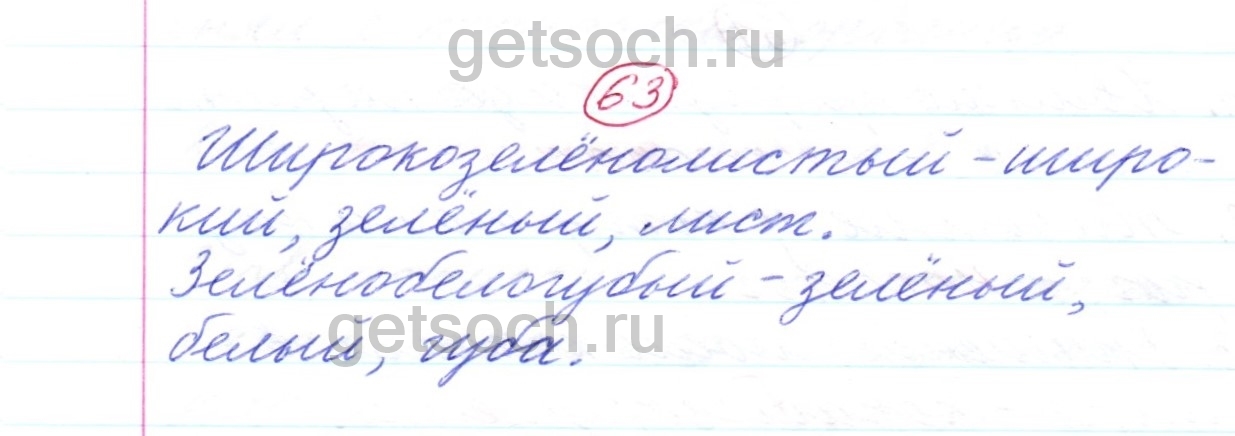 getsoch.ru
63
Широкозелёнолистый - широ-
кий, зелёный, лист.
Зелёнобелогубый - зелёный,
getsoch.ru
белый, губа.